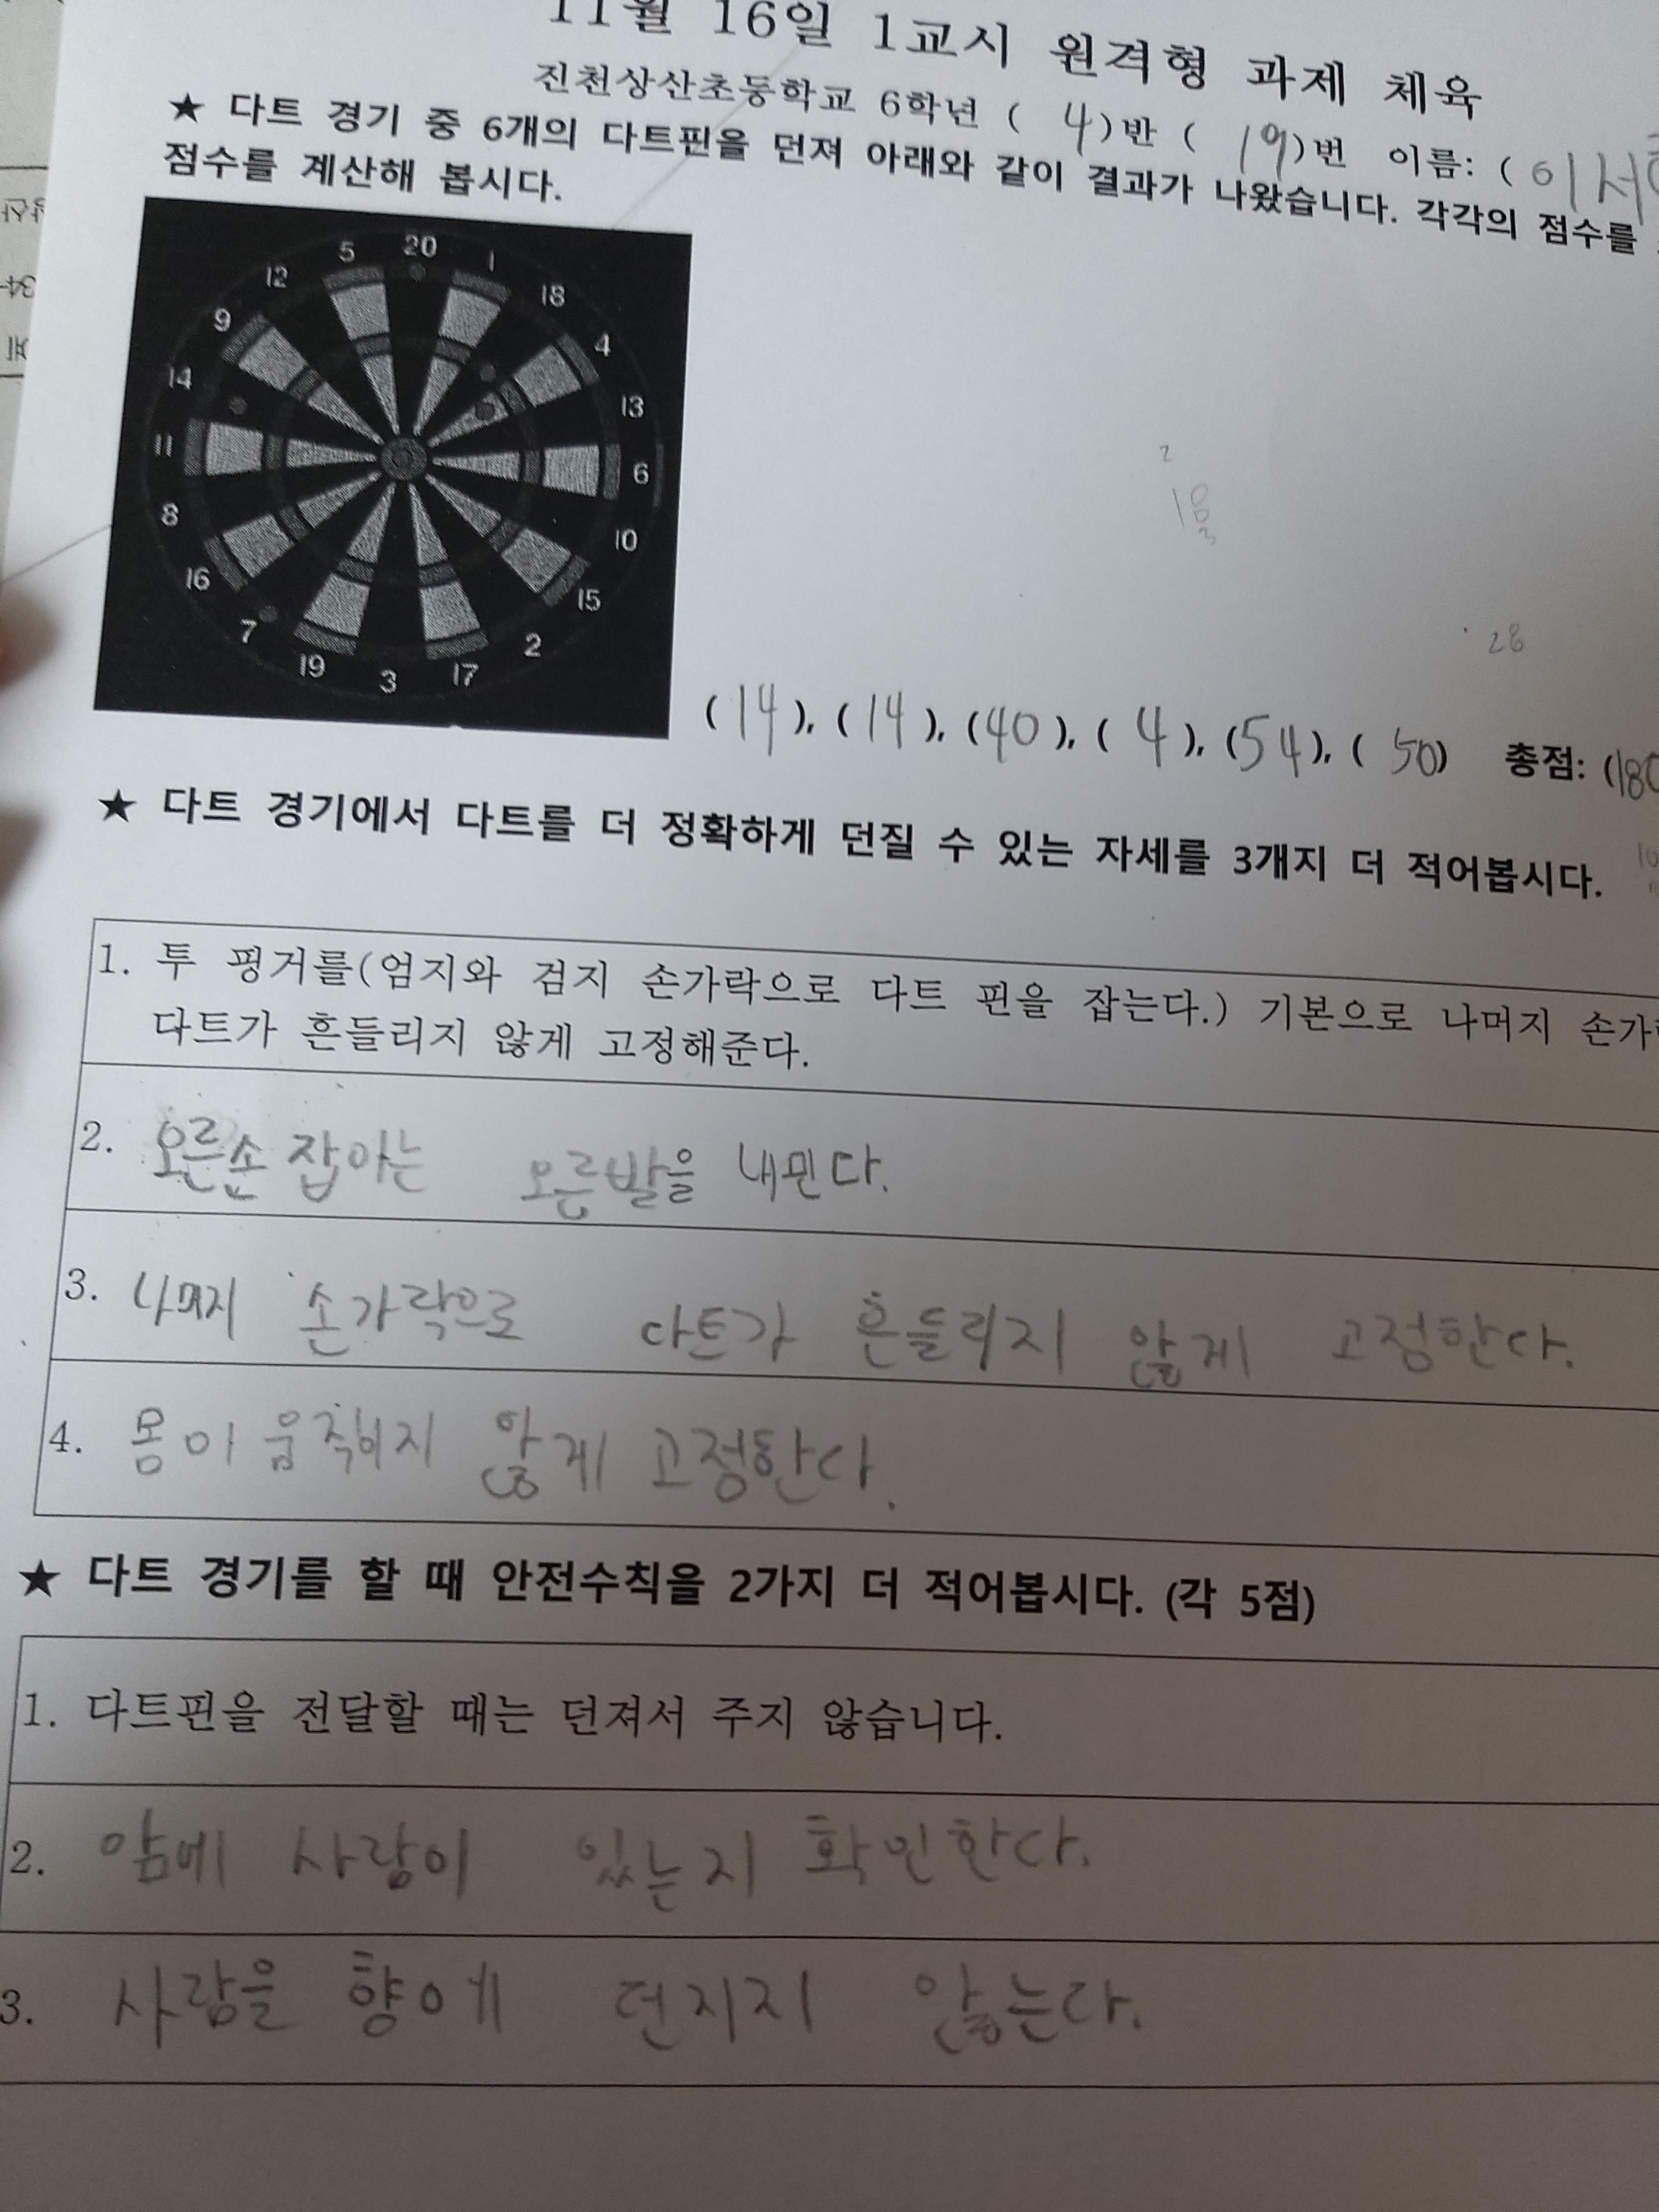 11월 16일 1교시 원격형 과제 체육
진천상산초등학교 6학년 ( 4 )반 ( 19 )번 이름: ( 이서
★ 다트 경기 중 6개의 다트핀을 던져 아래와 같이 결과가 나왔습니다. 각각의 점수를
점수를 계산해 봅시다.
5 20 1
12 18
9 4
14 13
11 6
8 10
16 15
7 2
19 3 17
28
(14), (14), (40), ( 4 ), (54), ( 50) 총점: (180
★ 다트 경기에서 다트를 더 정확하게 던질 수 있는 자세를 3개지 더 적어봅시다.
1. 투 핑거를(엄지와 검지 손가락으로 다트 핀을 잡는다.) 기본으로 나머지 손가
다트가 흔들리지 않게 고정해준다.
2. 오른손 잡이는 오른발을 내민다.
3. 나머지 손가락으로 다트가 흔들리지 않게 고정한다.
4. 몸이 움직이지 않게 고정한다.
★ 다트 경기를 할 때 안전수칙을 2가지 더 적어봅시다. (각 5점)
1. 다트핀을 전달할 때는 던져서 주지 않습니다.
2. 앞에 사람이 있는지 확인한다.
3. 사람을 향에 던지지 않는다.